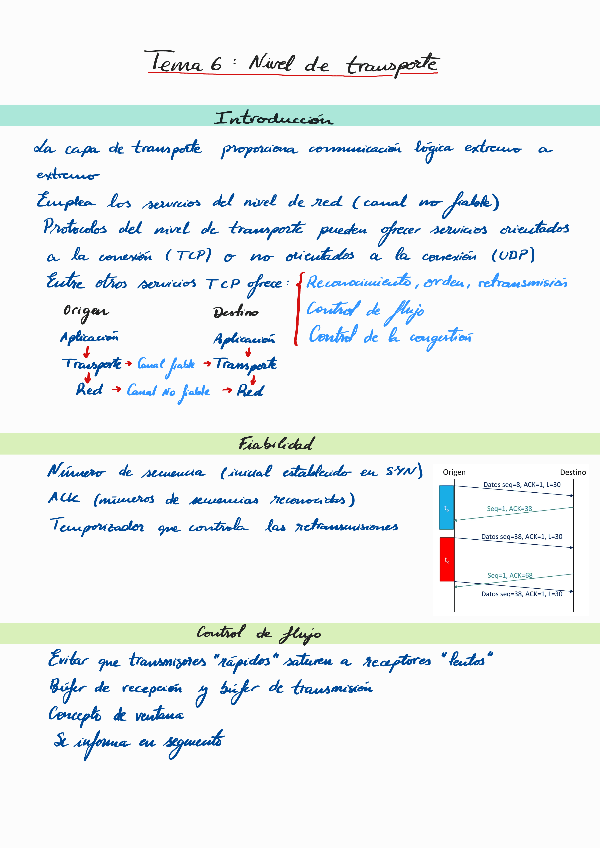 Tema 6: Nivel de transporte
Introducción
La capa de transporte proporciona comunicación lógica extremo a
extremo
Emplea los servicios del nivel de red (canal no fiable)
Protocolos del nivel de transporte pueden ofrecer servicios orientados
a la conexión (TCP) o no orientados a la conexión (UDP)
Entre otros servicios TCP ofrece: Reconocimiento, orden, retransmisión
Control de flujo
Control de la congestión
Origen Destino
Aplicación Aplicación
Transporte → Canal fiable → Transporte
Red → Canal No fiable → Red
Fiabilidad
Número de secuencia (inicial establecido en SYN)
ACK (números de secuencias reconocidos)
Temporizador que controla las retransmisiones
Origen Destino
Datos seq=8, ACK=1, L=30
Seq=1, ACK=38
Datos seq=38, ACK=1, L=30
Seq=1, ACK=68
Datos seq=38, ACK=1, L=30
Control de flujo
Evitar que transmisores "rápidos" saturen a receptores "lentos"
Búfer de recepción y búfer de transmisión
Concepto de ventana
Se informa en segmento